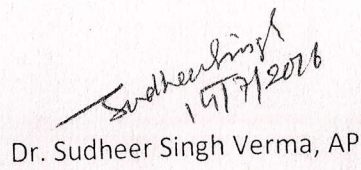 Sudheer Singh
Dr. Sudheer Singh Verma, AP